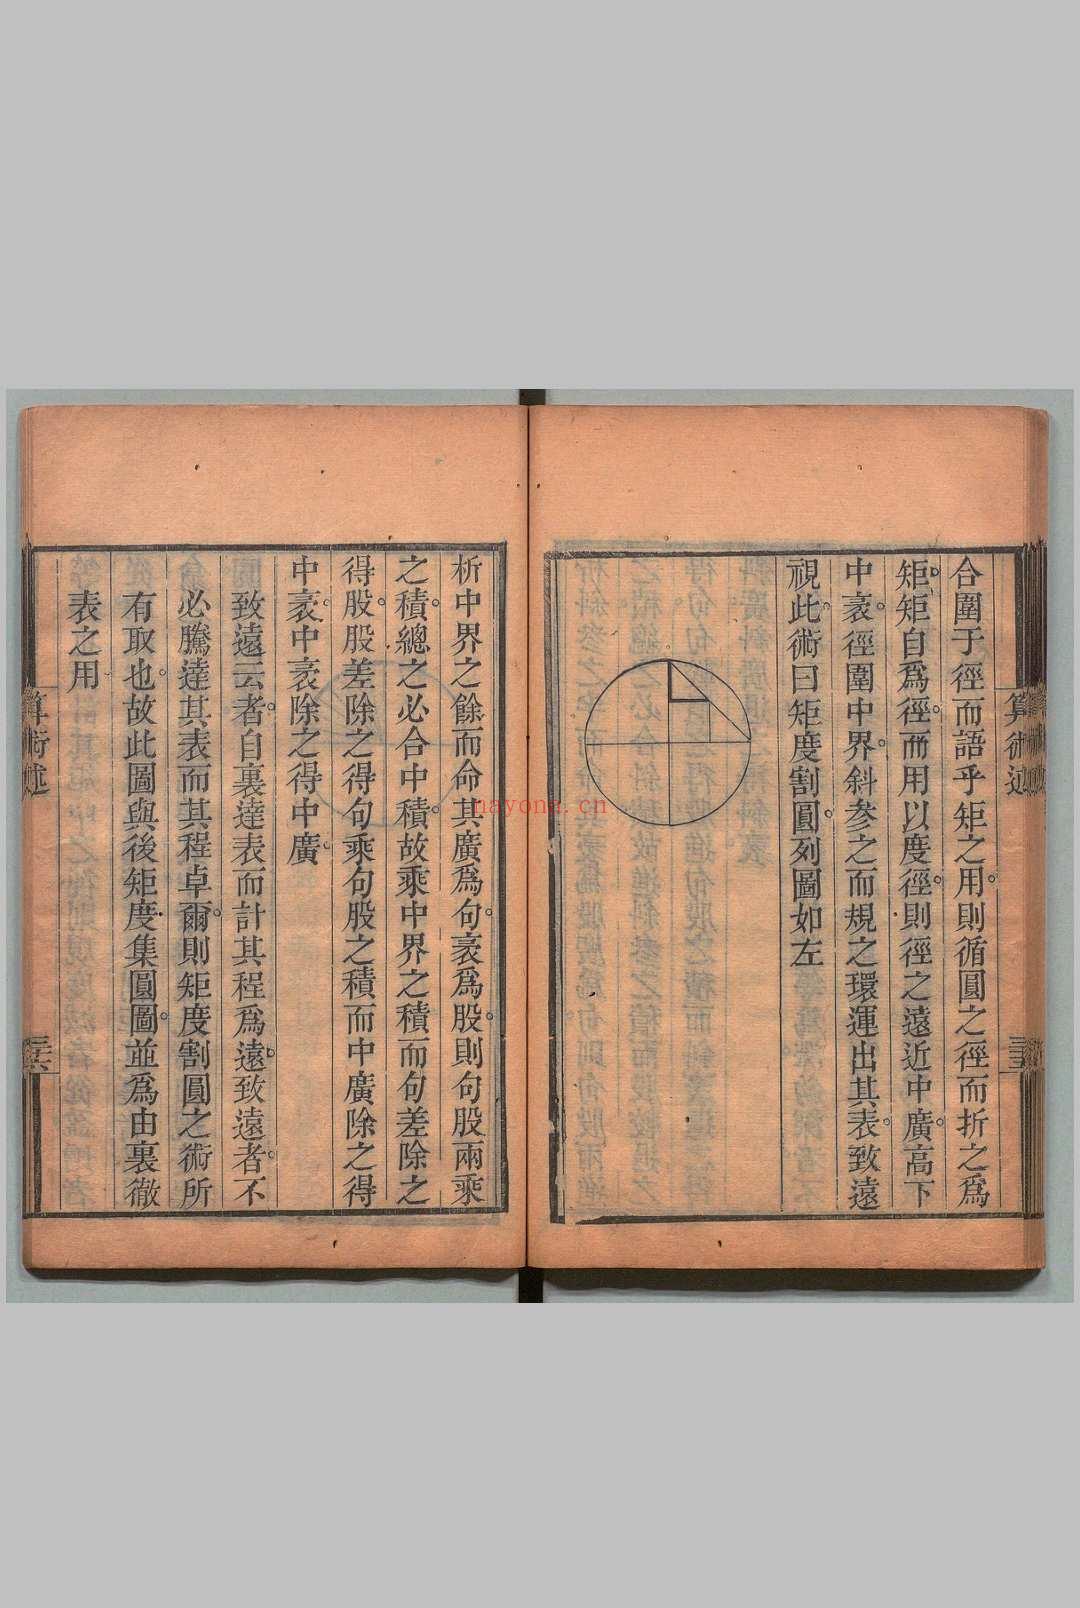 合圍于徑而語乎矩之用則循圓之徑而折之爲
矩矩自爲徑而用以度徑則徑之遠近中廣高下
中袤徑圍中界斜參之而規之環運出其表致遠
視此術曰矩度割圓列圖如左
算術述
析中界之餘而命其廣爲句袤爲股則句股兩乘
之積總之必合中積故乘中界之積而句差除之
得股股差除之得句乘句股之積而中廣除之得
中袤中袤除之得中廣
致遠云者自裏達表而計其程爲遠致遠者不
必騰達其表而其程卓爾則矩度割圓之術所
有取也故此圖與後矩度集圓圖並爲由裏徹
表之用
算術述
nayona.cn